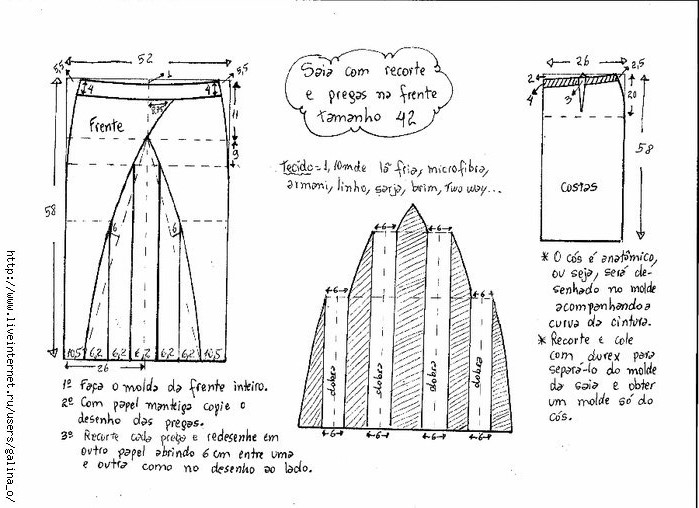 52
5,5
1
5,5
4
4
2,5
Frente
11
9
58
6
6
10,5 6,2 6,2 6,2 6,2 6,2 10,5
26
Saia com recorte
e pregas na frente
tamanho 42
Tecido = 1,10m de lã fria, microfibra,
armani, linho, sarja, brim, Two way...
6
6
6
6
dobra
dobra
dobra
dobra
6
6
6
6
26
2,5
2
4
3
20
58
costas
* O cós é anatômico,
ou seja, será de-
senhado no molde
acompanhando a
curva da cintura.
* Recorte e cole
com durex para
separá-lo do molde
da saia e obter
um molde só do
cós.
1º Faça o molde da frente inteiro.
2º Com papel manteiga copie o
desenho das pregas.
3º Recorte cada prega e redesenhe em
outro papel abrindo 6 cm entre uma
e outra como no desenho ao lado.
http://www.liveinternet.ru/users/galina_o/